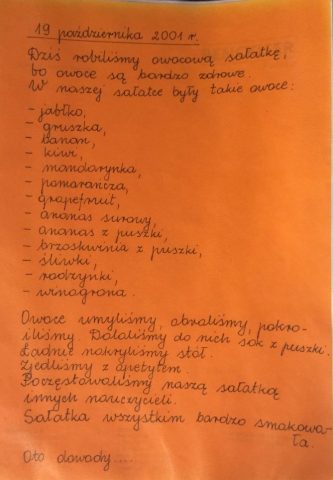 19 października 2001 r.
Dziś robiliśmy owocową sałatkę,
bo owoce są bardzo zdrowe.
W naszej sałatce były takie owoce:
- jabłko,
- gruszka,
- banan,
- kiwi,
- mandarynka,
- pomarańcza,
- grapefruit,
- ananas surowy,
- ananas z puszki,
- brzoskwinia z puszki,
- śliwki,
- rodzynki,
- winogrona.
Owoce umyliśmy, obraliśmy, pokro-
iliśmy. Dolaliśmy do nich sok z puszki.
Ładnie nakryliśmy stół.
Zjedliśmy z apetytem.
Poczęstowaliśmy naszą sałatką
innych nauczycieli.
Sałatka wszystkim bardzo smakowa-
ła.
Oto dowody.....